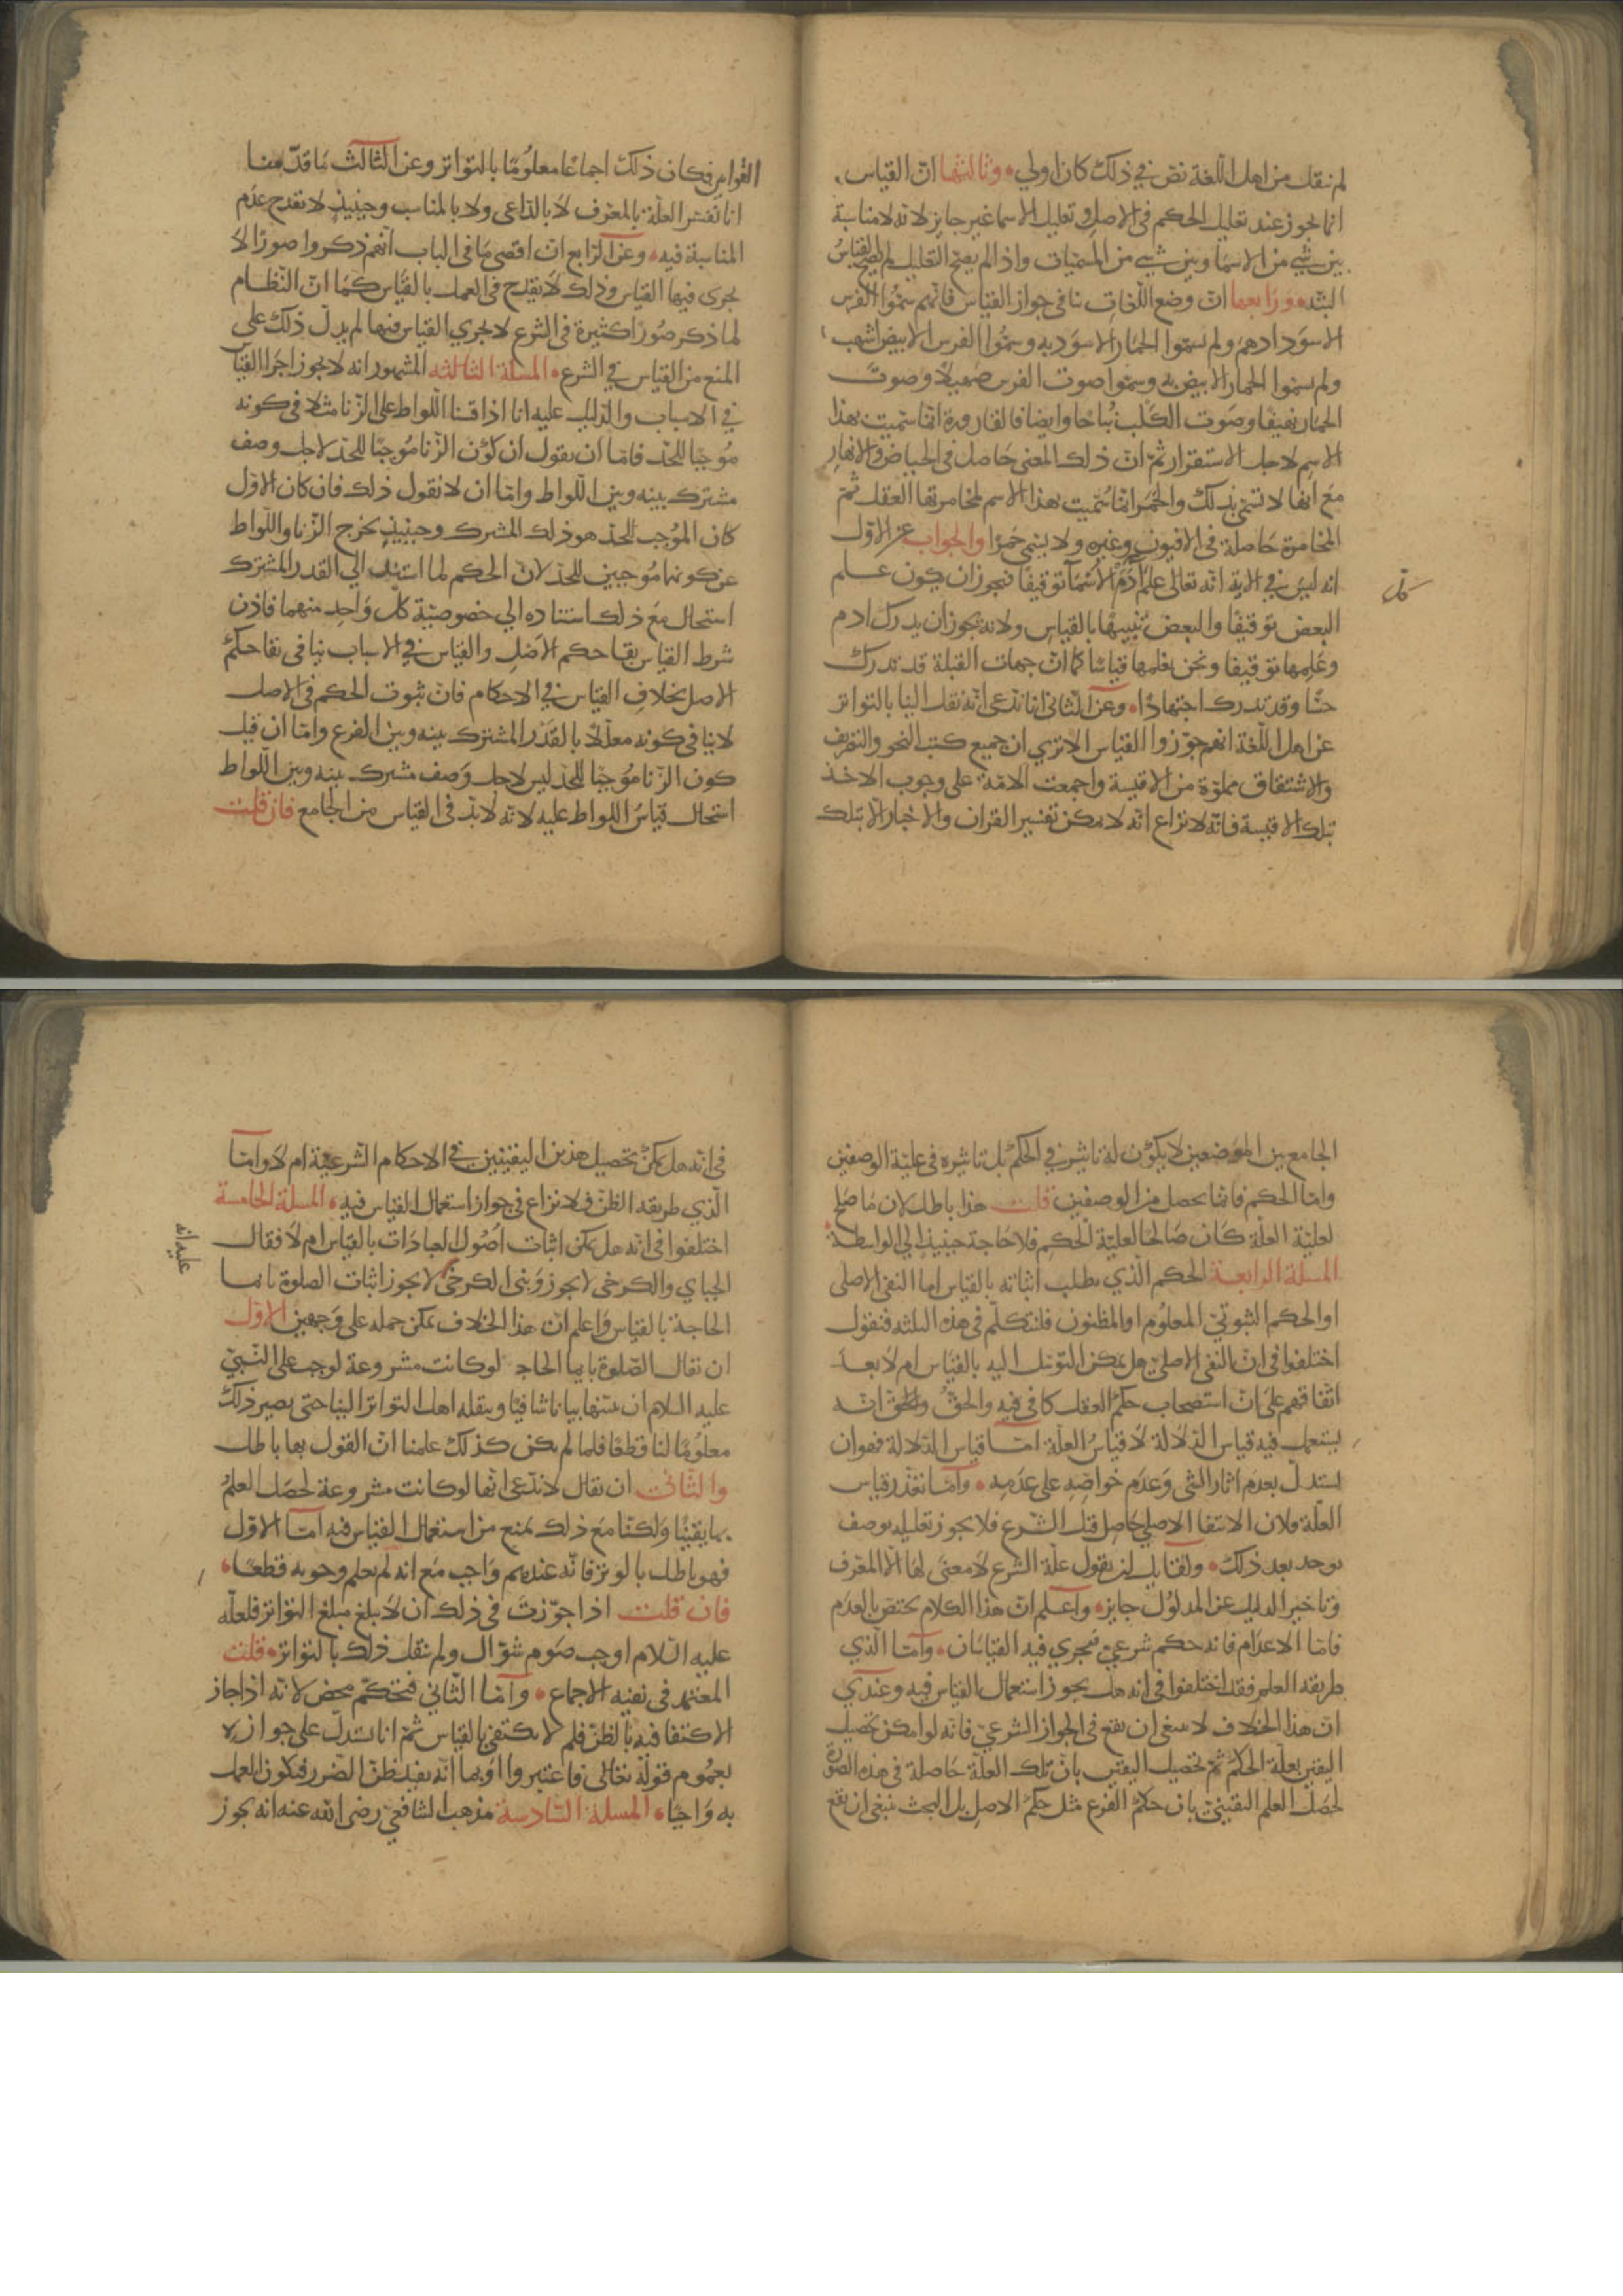 لم ينقل من اهل اللغة نص في ذلك كان اولي وثالثها ان القياس
انما يجوز عند تعليل الحكم في الاصل وتعليل الاسما غير جايز لانه لا مناسبة
بين شي من الاسما وبين شي من المسميات واذا لم يصح التعليل لم يصح القياس
البتة ورابعها ان وضع اللغات ينافي جواز القياس فانهم سموا الفرس
الاسود ادهم ولم يسموا الحمار الاسود به وسموا الفرس الابيض اشهب
ولم يسموا الحمار الابيض به وسموا صوت الفرس صهيلا وصوت
الحمار نهيقا وصوت الكلب نباحا وايضا فالقارورة انما سميت بهذا
الاسم لاجل الاستقرار ثم ان ذلك المعنى حاصل في الحياض والانهار
مع انها لا تسمى بذلك والخمر انما سميت بهذا الاسم لمخامرتها العقل ثم
المخامرة حاصلة في الافيون وغيره ولا يسمى خمرا والجواب عن الاول
انه ليس في الاية انه تعالى علم آدم الاسما توقيفا فيجوز ان يكون علم
البعض توقيفا والبعض تنبيها بالقياس ولانه يجوز ان يدرك ادم
وعلمها توقيفا ونحن نعلمها قياسا كما ان جهات القبلة قد تدرك
حسا وقد تدرك اجتهادا وعن الثاني انا ندعى انه نقل الينا بالتواتر
عن اهل اللغة انهم جوزوا القياس الا تري ان جميع كتب النحو والتصريف
والاشتقاق مملوة من الاقيسة واجمعت الامة على وجوب الاخذ
بتلك الاقيسة فانه لا نزاع انه لا يمكن تفسير القران والاخبار الا بتلك
القوانين فكان ذلك اجماعا معلوما بالتواتر وعن الثالث ما قدمنا
انا نفسر العلة بالمعرف لا بالداعى ولا بالمناسب وحينيذ لا يقدح عدم
المناسبة فيه وعن الرابع ان اقصى ما في الباب انهم ذكروا صورا لا
يجرى فيها القياس وذلك لا يقدح في العمل بالقياس كما ان النظام
لما ذكر صورا كثيرة في الشرع لا يجري القياس فيها لم يدل ذلك على
المنع من القياس في الشرع المسلة الثالثه المشهور انه لا يجوز اجرا القياس
في الاسباب والدليل عليه انا اذا قسنا اللواط على الزنا مثلا في كونه
موجبا للحد فاما ان يقول ان كون الزنا موجبا للحد لاجل وصف
مشترك بينه وبين اللواط واما ان لا نقول ذلك فان كان الاول
كان الموجب للحد هو ذلك المشترك وحينيذ يخرج الزنا واللواط
عن كونهما موجبين للحد لان الحكم لما استند الي القدر المشترك
استحال مع ذلك استناده الي خصوصية كل واحد منهما فاذن
شرط القياس بقا حكم الاصل والقياس في الاسباب ينافي بقا حكم
الاصل بخلاف القياس في الاحكام فان ثبوت الحكم في الاصل
لا ينافي كونه معللا بالقدر المشترك بينه وبين الفرع واما ان قيل
كون الزنا موجبا للحد ليس لاجل وصف مشترك بينه وبين اللواط
استحال قياس اللواط عليه لانه لا بد في القياس من الجامع فان قلت
الجامع بين الموضعين لا يكون له تاثير في الحكم بل تاثيره في علية الوصفين
واما الحكم فانما يحصل من الوصفين قلت هذا باطل لان ما صلح
لعلية العلة كان صالحا لعلية الحكم فلا حاجة حينيذ الي الواسطة
المسلة الرابعة الحكم الذي يطلب اثباته بالقياس اما النفي الاصلي
او الحكم الثبوتي المعلوم او المظنون فلنتكلم في هذه الثلثه فنقول
اختلفوا في ان النفي الاصلي هل يمكن التوسل اليه بالقياس ام لا بعد
اتفاقهم على ان استصحاب حكم العقل كافي فيه والحق والحق انه
يستعمل فيه قياس الدلالة لا قياس العلة اما قياس الدلالة فهو ان
يستدل بعدم اثار الشى وعدم خواصه على عدمه واما تعذر قياس
العلة فلان الانتفا الاصلي حاصل قبل الشرع فلا يجوز تعليله بوصف
يوجد بعد ذلك ولقايل ان يقول علة الشرع لا معنى لها الا المعرف
وتاخير الدليل عن المدلول جايز واعلم ان هذا الكلام يختص بالعدم
فاما الاعدام فانه حكم شرعي فيجري فيه القياسان واما الذي
طريقه العلم فقد اختلفوا في انه هل يجوز استعمال القياس فيه وعندي
ان هذا الخلاف لا ينبغى ان يقع في الجواز الشرعي فانه لو امكن تحصيل
اليقين بعلة الحكم ثم تحصيل اليقين بان تلك العلة حاصلة في هذه الصورة
لحصل العلم اليقيني بان حكم الفرع مثل حكم الاصل بل البحث ينبغي ان يقع
في انه هل يمكن تحصيل هذين اليقينين في الاحكام الشرعية ام لا واما
الذي طريقه الظن فلا نزاع في جواز استعمال القياس فيه المسلة الخامسة
اختلفوا في انه هل يمكن اثبات اصول العبادات بالقياس ام لا فقال
الجباي والكرخي لا يجوز وبنى الكرخي لا يجوز اثبات الصلوة بايما
الحاجة بالقياس واعلم ان هذا الخلاف يمكن حمله على وجهين الاول
ان يقال الصلوة بايما الحاجـ لو كانت مشروعة لوجب على النبي
عليه السلام ان يبينها بيانا شافيا وينقله اهل التواتر الينا حتى يصير ذلك
معلوما لنا قطعا فلما لم يكن كذلك علمنا ان القول بها باطل
والثاني ان يقال لا ندعى انها لو كانت مشروعة لحصل العلم
بها يقينا ولكنا مع ذلك نمنع من استعمال القياس فيه اما الاول
فهو باطل بالوتر فانه عندهم واجب مع انه لم يعلم وجوبه قطعا
فان قلت اذا جوزت في ذلك ان لا يبلغ مبلغ التواتر فلعله
عليه السلام اوجب صوم شوال ولم ينقل ذلك بالتواتر قلت
المعتمد في نفيه الاجماع واما الثاني فتحكم محض لانه اذا جاز
الاكتفا فيه بالظن فلم لا يكتفى بالقياس ثم انا نستدل على جوازه
بعموم قوله تعالى فاعتبروا او بما انه يفيد ظن الضرر فيكون العمل
به واجبا المسلة السادسة مذهب الشافعي رضي الله عنه انه يجوز